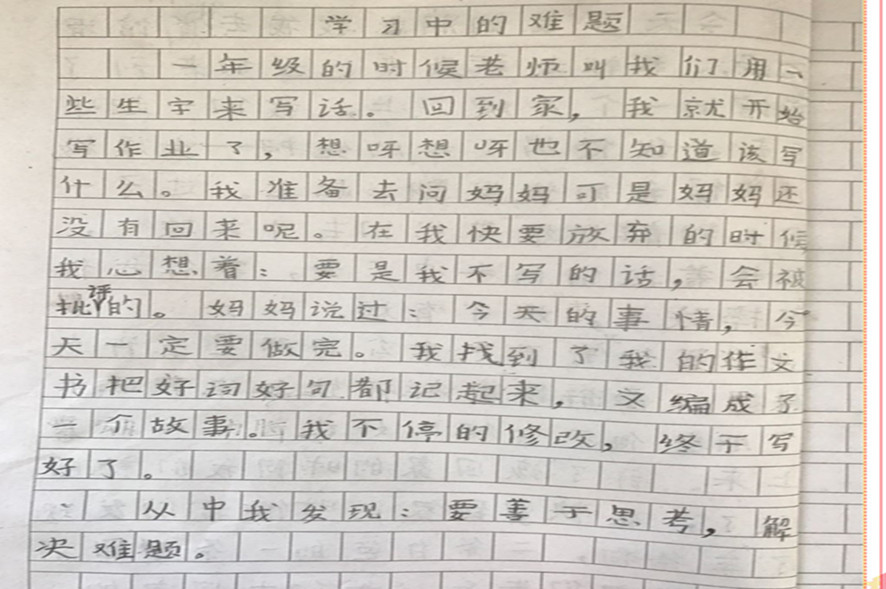 学习中的难题
一年级的时候老师叫我们用一
些生字来写话。回到家，我就开始
写作业了，想呀想呀也不知道该写
什么。我准备去问妈妈可是妈妈还
没有回来呢。在我快要放弃的时候
我心想着：要是我不写的话，会被
批评的。妈妈说过：今天的事情，今
天一定要做完。我找到了我的作文
书把好词好句都记起来，文编成了
一个故事。我不停的修改，终于写
好了。
从中我发现：要善于思考，解
决难题。